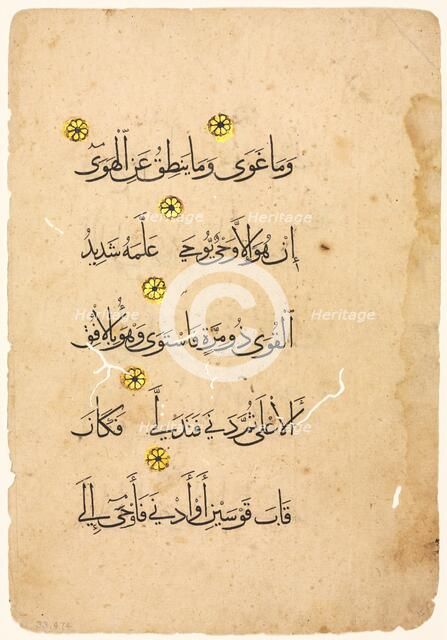 وَمَا غَوَى وَمَا يَنْطِقُ عَنِ الْهَوَى
إِنْ هُوَ إِلَّا وَحْيٌ يُوحَى عَلَّمَهُ شَدِيدُ
الْقُوَى ذُو مِرَّةٍ فَاسْتَوَى وَهُوَ بِالْأُفُقِ
الْأَعْلَى ثُمَّ دَنَى فَتَدَلَّى فَكَانَ
قَابَ قَوْسَيْنِ أَوْ أَدْنَى فَأَوْحَى إِلَى
Heritage Heritage
Heritage
Heritage Heritage
Heritage Heritage
33.474